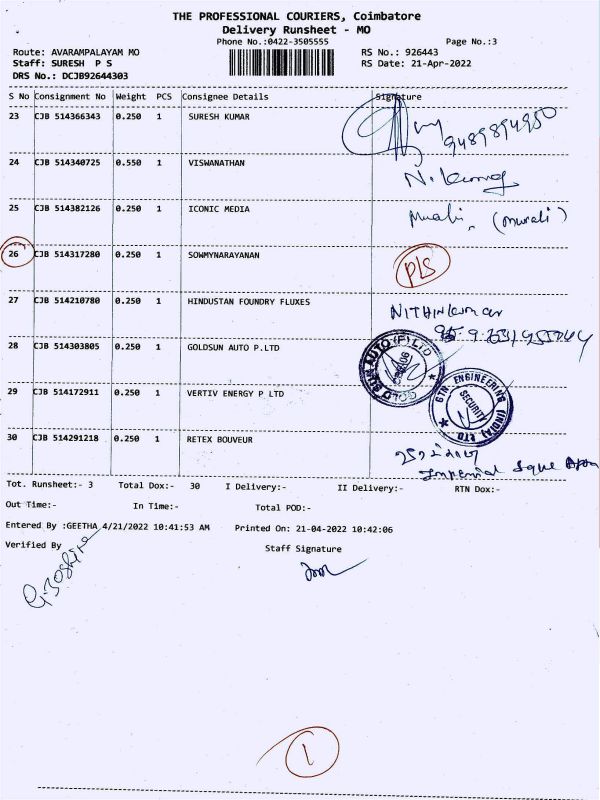 THE PROFESSIONAL COURIERS, Coimbatore
Delivery Runsheet - MO
Phone No.:0422-3505555 Page No.:3
Route: AVARAMPALAYAM MO RS No.: 926443
Staff: SURESH P S RS Date: 21-Apr-2022
DRS No.: DCJB92644303
S No Consignment No Weight PCS Consignee Details Signature
23 CJB 514366343 0.250 1 SURESH KUMAR
9489894950
24 CJB 514340725 0.550 1 VISWANATHAN
25 CJB 514382126 0.250 1 ICONIC MEDIA (murali)
26 CJB 514317280 0.250 1 SOWMYNARAYANAN PLS
27 CJB 514210780 0.250 1 HINDUSTAN FOUNDRY FLUXES NITHINkumar
28 CJB 514303805 0.250 1 GOLDSUN AUTO P.LTD
GOLD SUN AUTO (P) LTD
29 CJB 514172911 0.250 1 VERTIV ENERGY P LTD
GTN. ENGINEERING (INDIA) LTD.
SECURITY
30 CJB 514291218 0.250 1 RETEX BOUVEUR
Tot. Runsheet:- 3 Total Dox:- 30 I Delivery:- II Delivery:- RTN Dox:-
Out Time:- In Time:- Total POD:-
Entered By :GEETHA 4/21/2022 10:41:53 AM Printed On: 21-04-2022 10:42:06
Verified By Staff Signature
1